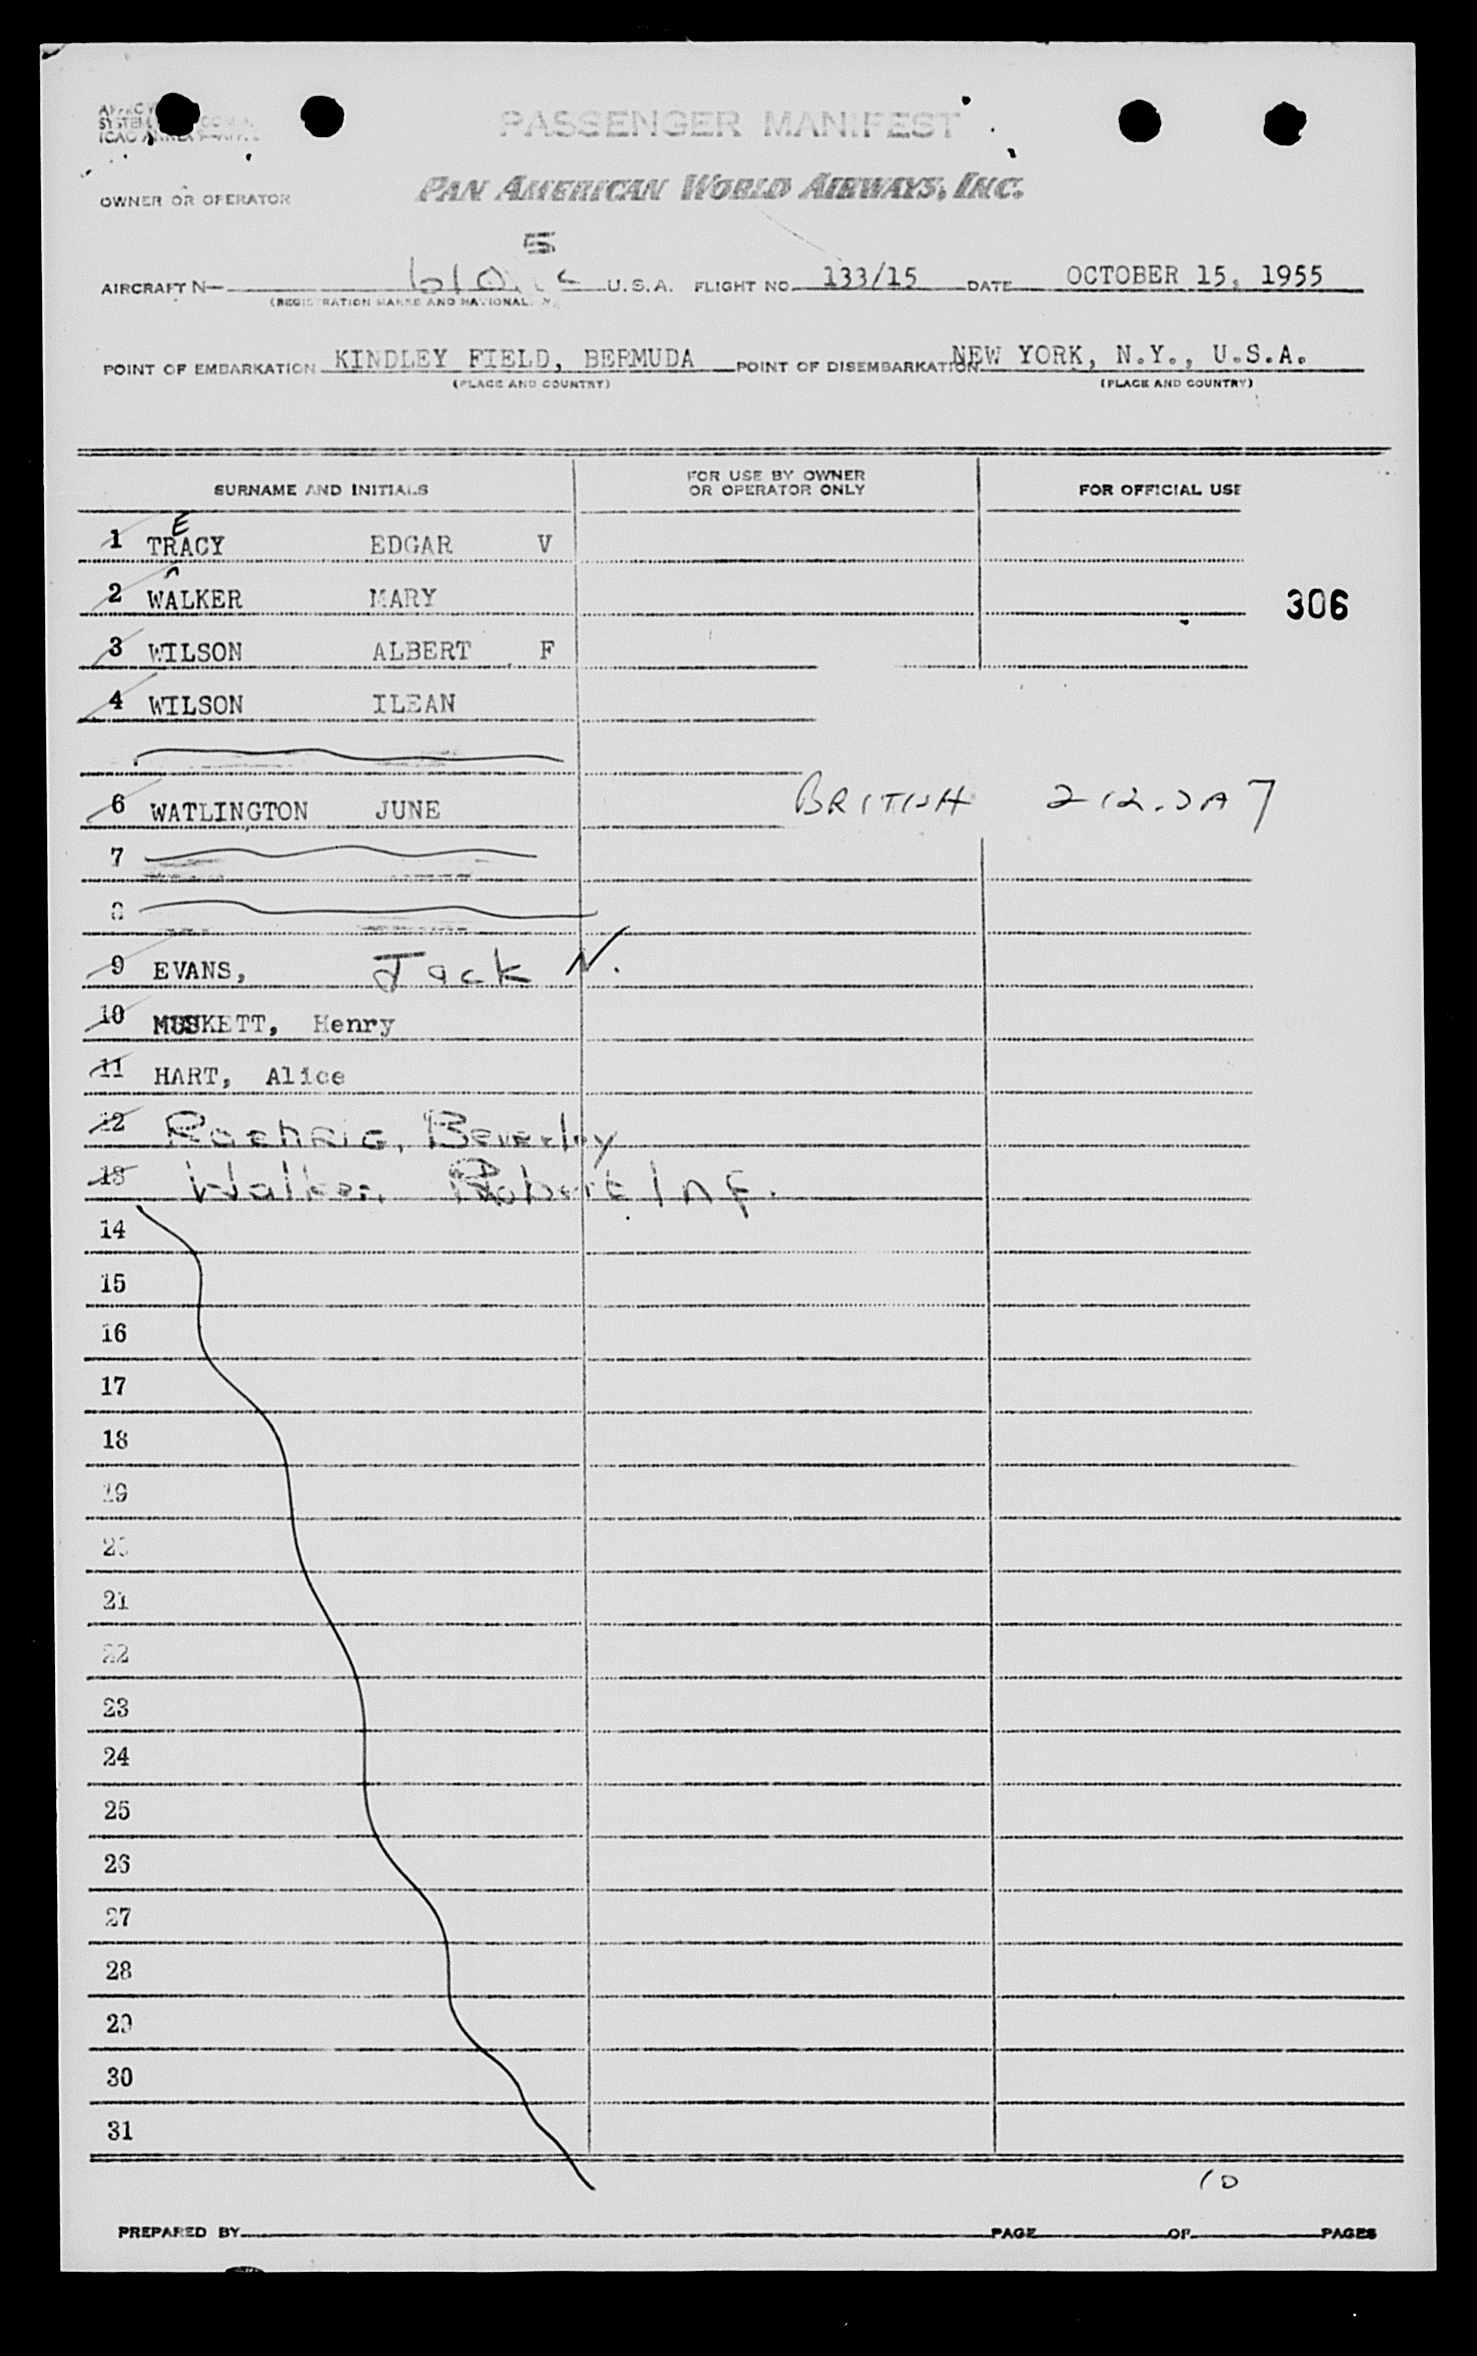 PASSENGER MANIFEST
OWNER OR OPERATOR PAN AMERICAN WORLD AIRWAYS, INC.
5
AIRCRAFT N— U.S.A. FLIGHT NO. 133/15 DATE OCTOBER 15, 1955
(REGISTRATION MARKS AND NATIONAL
POINT OF EMBARKATION KINDLEY FIELD, BERMUDA POINT OF DISEMBARKATION NEW YORK, N.Y., U.S.A.
(PLACE AND COUNTRY) (PLACE AND COUNTRY)
SURNAME AND INITIALS FOR USE BY OWNER OR OPERATOR ONLY FOR OFFICIAL USE
E
1 TRACY EDGAR V
2 WALKER MARY
306
3 WILSON ALBERT F
4 WILSON ILEAN
6 WATLINGTON JUNE BRITISH
7
8
9 EVANS, Jack N.
10 MUSKETT, Henry
11 HART, Alice
12 Beverley
13 Walker, Robert Inf.
14
15
16
17
18
19
20
21
22
23
24
25
26
27
28
29
30
31
10
PREPARED BY PAGE OF PAGES